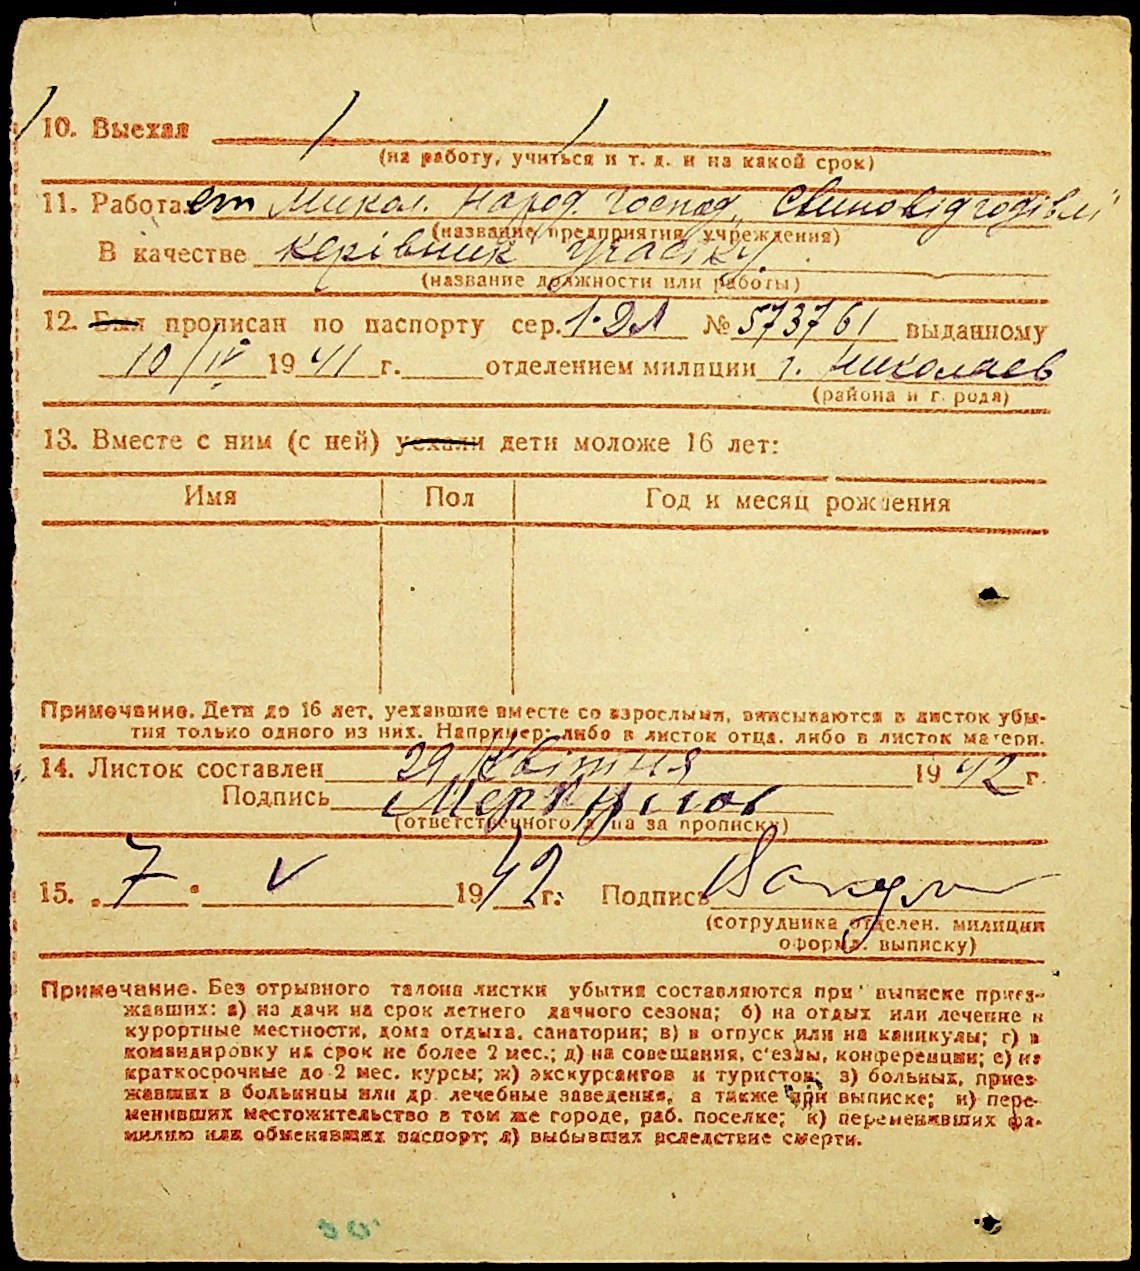 10. Выехал
(на работу, учиться и т. д. и на какой срок)
11. Работает Микол. Народ. Господ. Свиновідгодівлі
(название предприятия, учреждения)
В качестве керівник участку
(название должности или работы)
12. Был прописан по паспорту сер. 1-ДЛ № 573761 выданному
10/IV 1941 г. отделением милиции г. Николаев
(района и г. рода)
13. Вместе с ним (с ней) уехали дети моложе 16 лет:
Имя Пол Год и месяц рождения
Примечание. Дети до 16 лет, уехавшие вместе со взрослыми, вписываются в листок убы-
тия только одного из них. Например: либо в листок отца, либо в листок матери.
14. Листок составлен 29 Квітня 1942 г.
Подпись Меркулов
(ответственного лица за прописку)
15. 7. V 1942 г. Подпись
(сотрудника отделен. милиции
оформ. выписку)
Примечание. Без отрывного талона листки убытия составляются при выписке приез-
жавших: а) на дачи на срок летнего дачного сезона; б) на отдых или лечение в
курортные местности, дома отдыха, санатории; в) в отпуск или на каникулы; г) в
командировку на срок не более 2 мес.; д) на совещания, с'езды, конференции; е) на
краткосрочные до 2 мес. курсы; ж) экскурсантов и туристов; з) больных, приез-
жавших в больницы или др. лечебные заведения, а также при выписке; и) пере-
менивших местожительство в том же городе, раб. поселке; к) переменивших фа-
милию или обменявших паспорт; л) выбывших вследствие смерти.